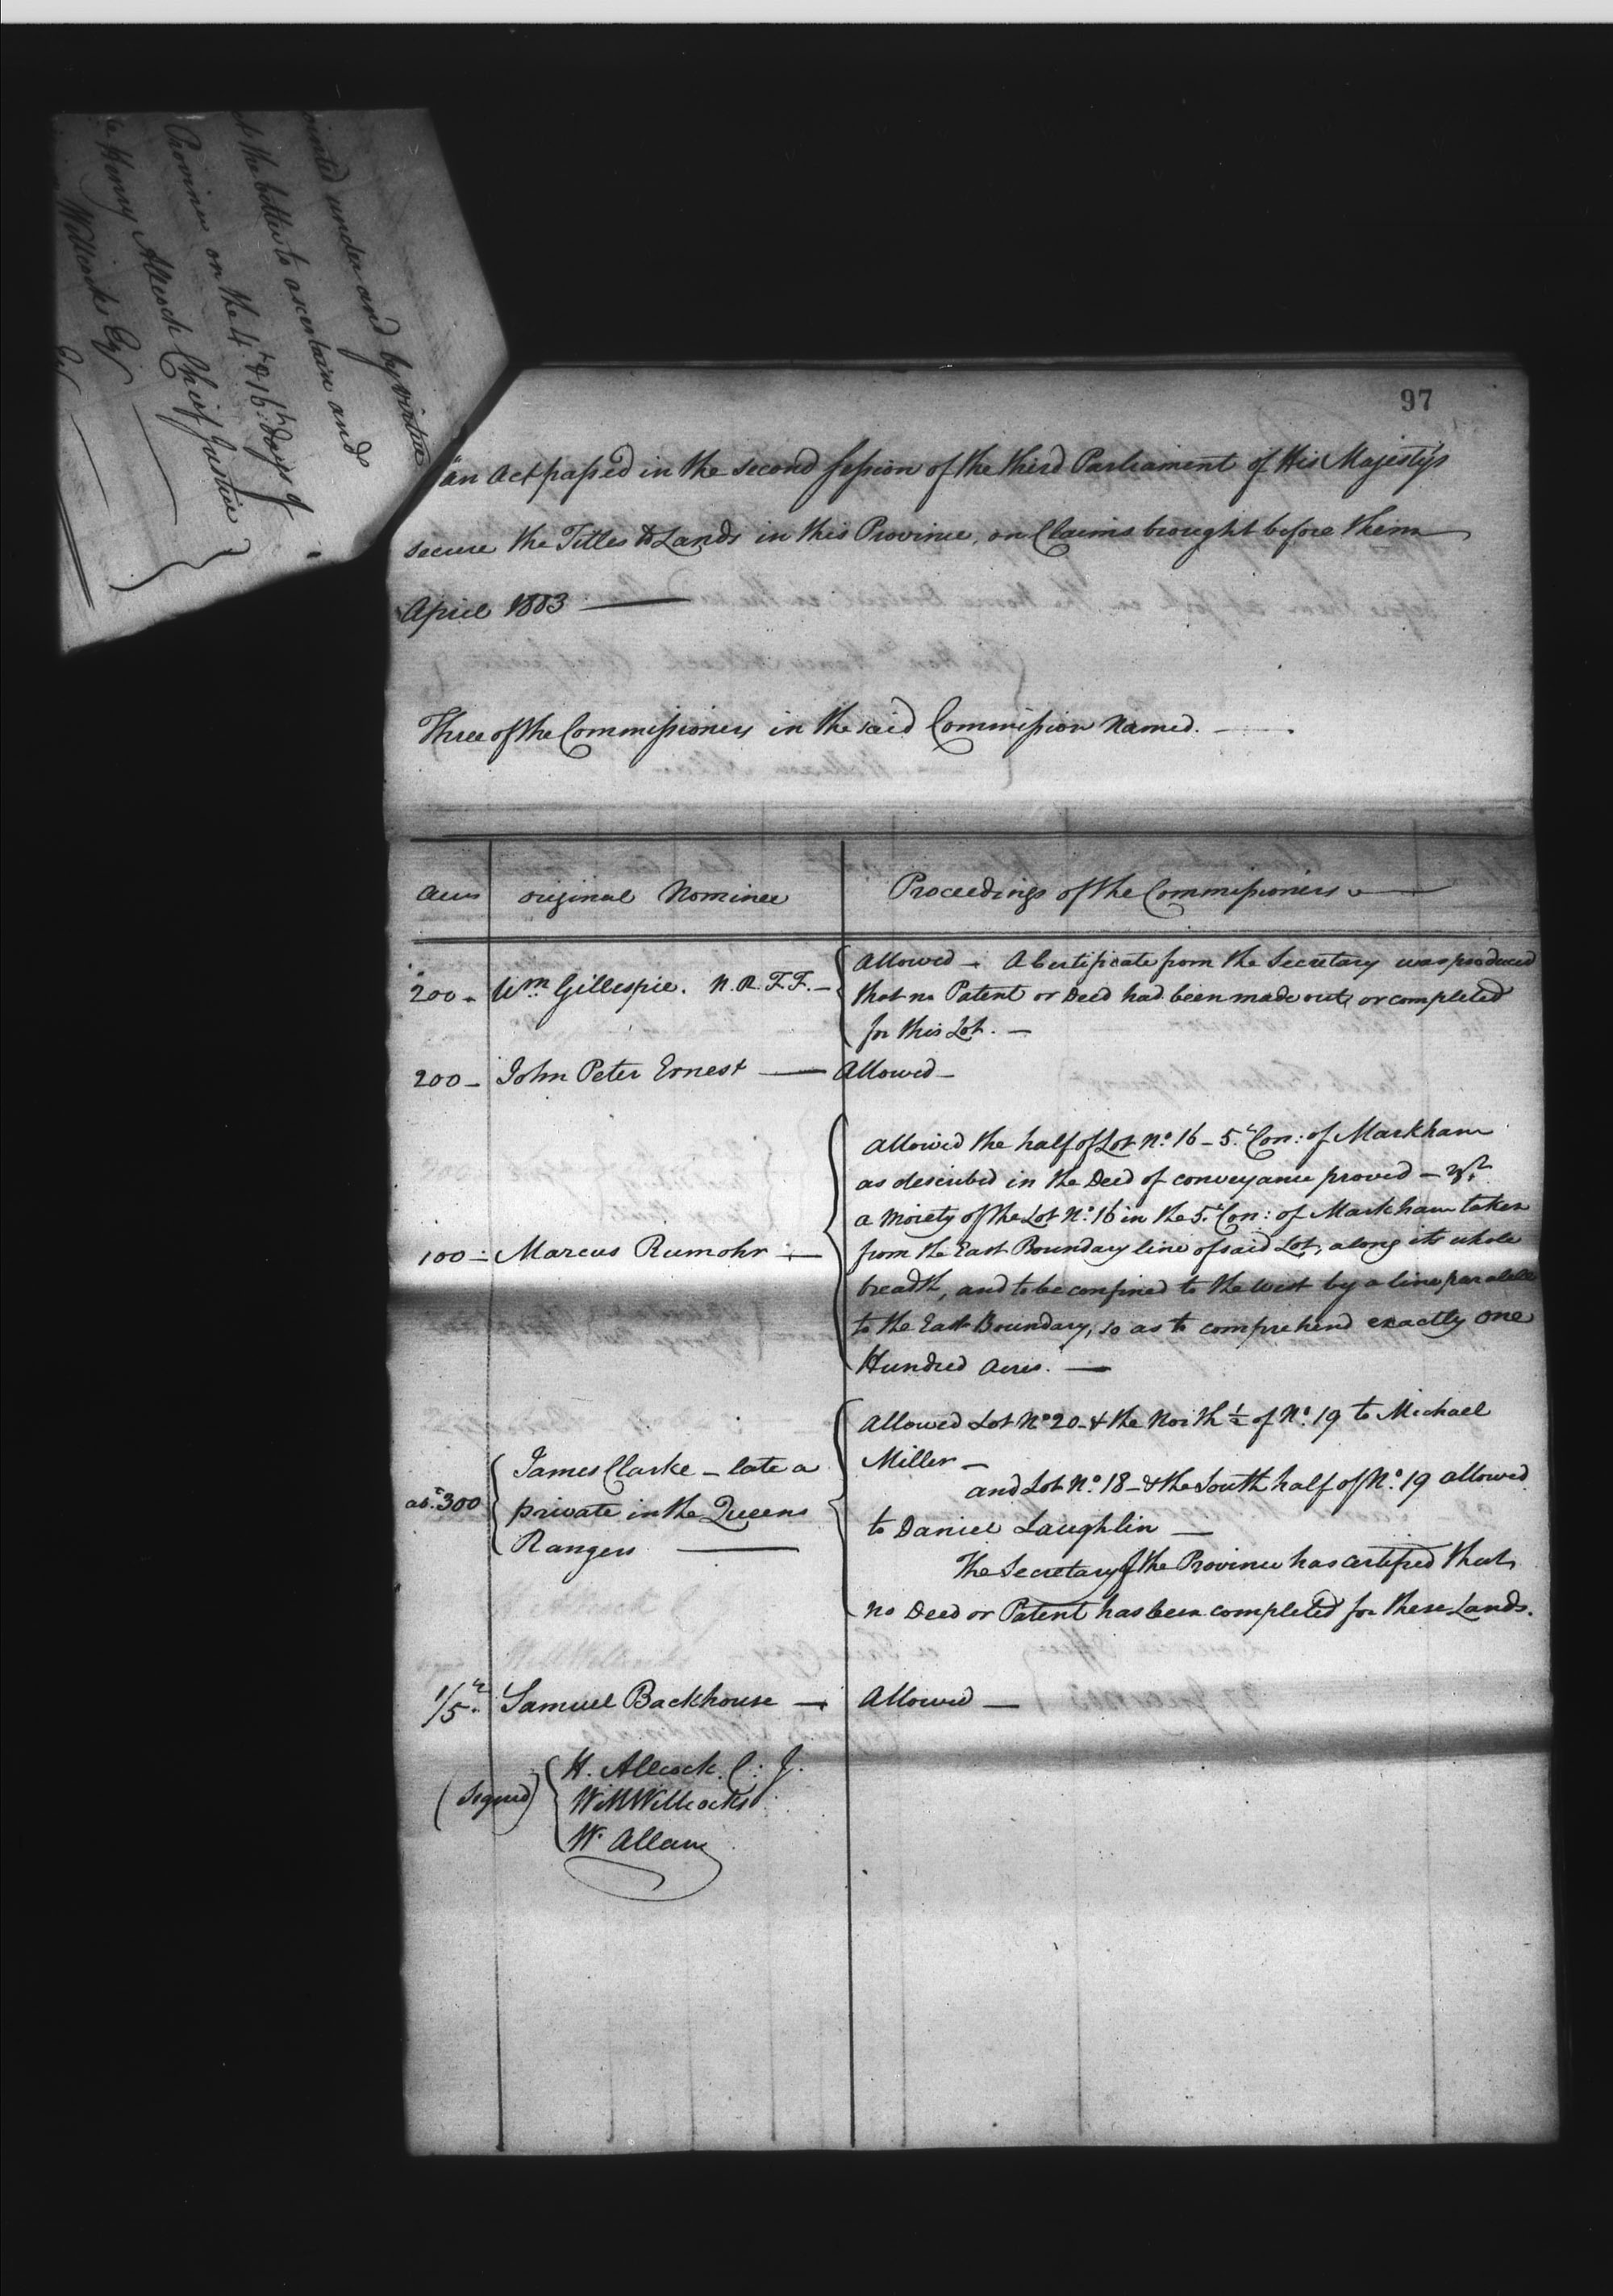 ointed under and by virtue
the better to ascertain and
Province on the 4th & 16th days of
Henry Allcock Chief Justice
Willcocks Esqr
Esqr
97
"an Act passed in the second Session of the third Parliament of His Majesty's
secure the Titles to Lands in this Province, on Claims brought before them
April 1803
Three of the Commissioners in the said Commission Named.
Acres original Nominee Proceedings of the Commissioners
Allowed - A Certificate from the Secretary was produced
200 - Wm Gillespie. N.R.F.F. - that no Patent or Deed had been made out, or completed
for this Lot. -
200 - John Peter Ernest - Allowed -
Allowed the half of Lot No. 16 - 5th Con: of Markham
as described in the Deed of conveyance proved - vizt
a Moiety of the Lot No. 16 in the 5th Con: of Markham taken
100 - Marcus Rumohr - from the East Boundary line of said Lot, along its whole
breadth, and to be confined to the west by a line paralell
to the East Boundary, so as to comprehend exactly one
Hundred Acres. -
Allowed Lot No 20 - & the North ½ of No. 19 to Michael
Miller -
James Clarke - late a
and Lot No. 18 - & the South half of No. 19 allowed
abt 300 private in the Queens
to Daniel Laughlin -
Rangers
The Secretary of the Province has certified that
no Deed or Patent has been completed for these Lands.
1/5th Samuel Backhouse - Allowed -
H. Allcock. C: J.
(Signed) Wm Willcocks
W. Allan